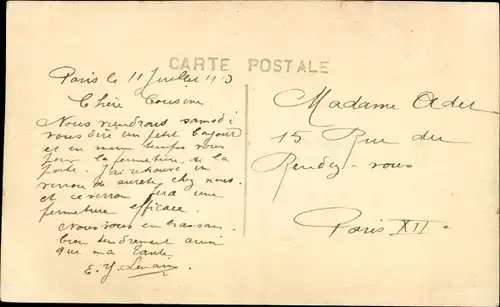 CARTE POSTALE
Paris le 11 Juillet
Chère Cousine
Nous viendrons samedi
vous dire un petit bonjour
et en même temps vous
pour la fermeture de la
porte. J'ai retrouvé un
verrou de sureté chez nous
et ce verrou fera une
fermeture efficace.
Nous vous embrassons
bien tendrement ainsi
que ma tante.
E. Y.
Madame Adet
15 Rue du
Rendez-vous
Paris XII e